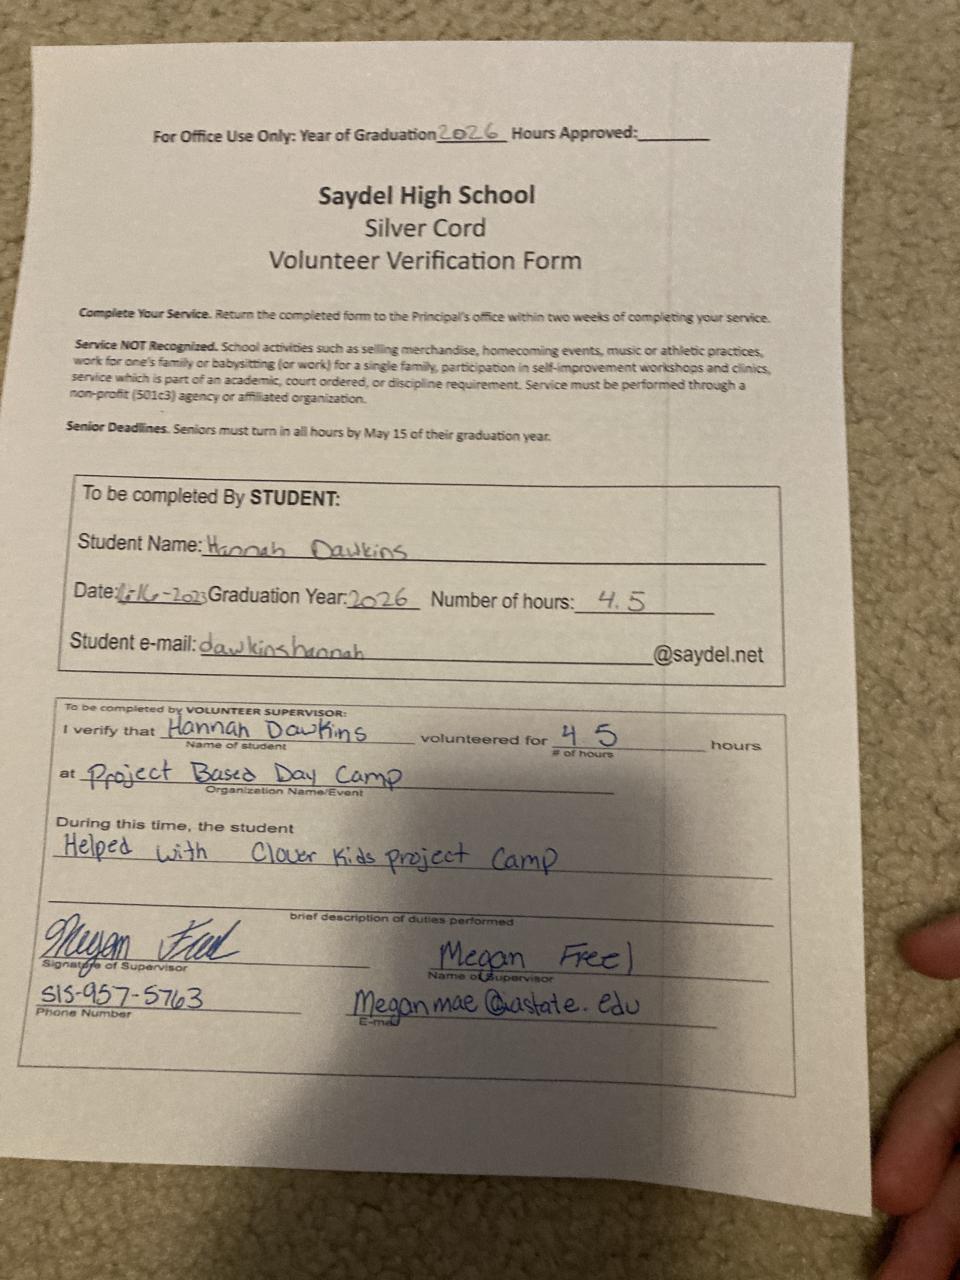 For Office Use Only: Year of Graduation 2026 Hours Approved:
Saydel High School
Silver Cord
Volunteer Verification Form
Complete Your Service. Return the completed form to the Principal's office within two weeks of completing your service.
Service NOT Recognized. School activities such as selling merchandise, homecoming events, music or athletic practices,
work for one's family or babysitting (or work) for a single family, participation in self-improvement workshops and clinics,
service which is part of an academic, court ordered, or discipline requirement. Service must be performed through a
non-profit (501c3) agency or affiliated organization.
Senior Deadlines. Seniors must turn in all hours by May 15 of their graduation year.
To be completed By STUDENT:
Student Name: Hannah Dawkins
Date: Graduation Year: 2026 Number of hours: 4.5
Student e-mail: dawkinshannah @saydel.net
To be completed by VOLUNTEER SUPERVISOR:
I verify that Hannah Dawkins volunteered for 4.5 hours
Name of student # of hours
at Project Based Day Camp
Organization Name/Event
During this time, the student
Helped with Clover Kids project Camp
brief description of duties performed
Megan Freel Megan Freel
Signature of Supervisor Name of Supervisor
515-957-5763 Meganmae@iastate.edu
Phone Number E-mail